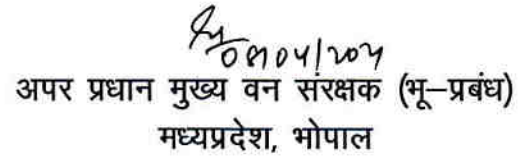 अपर प्रधान मुख्य वन संरक्षक (भू–प्रबंध)
मध्यप्रदेश, भोपाल